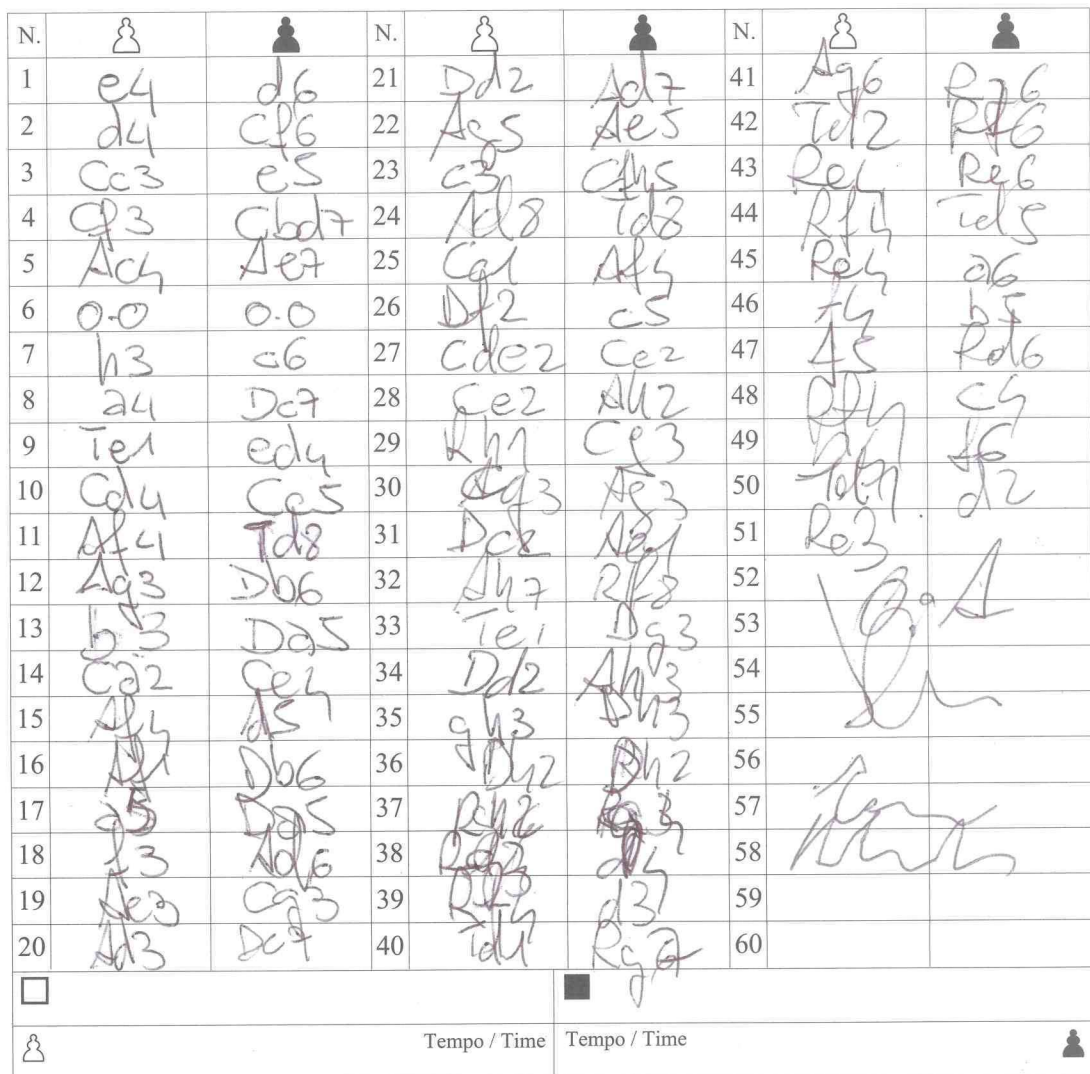 N. N. N.
1 e4 d6 21 Dd2 Ad7 41 Ag6 Rg6
2 d4 Cf6 22 Ag5 Ae5 42 Td2 Rf6
3 Cc3 e5 23 c3 Cfh5 43 Re4 Re6
4 Cf3 Cbd7 24 Ad8 Td8 44 Rf4 Td5
5 Ac4 Ae7 25 Cg1 Af4 45 Re4 a6
6 0-0 0-0 26 Df2 c5 46 b5
7 h3 c6 27 Cde2 Ce2 47 Rd6
8 a4 Dc7 28 Ce2 Ah2 48 Rf4 c4
9 Te1 ed4 29 Rh1 Cg3 49 f6
10 Cd4 Cc5 30 Ag3 50 d2
11 Af4 Td8 31 Ae1 51 Re3
12 Ag3 Db6 32 Ah7 Rf8 52
13 b3 Da5 33 Te1 Dg3 53
14 Ca2 Ce4 34 Dd2 Ah3 54
15 Af4 d5 35 gh3 Dh3 55
16 Db6 36 Dh2 Dh2 56
17 a5 Da5 37 Rh2 57
18 f3 Ad6 38 d4 58
19 Ae3 Cg3 39 d3 59
20 Ad3 Dc7 40 Td4 Rg7 60
Tempo / Time Tempo / Time